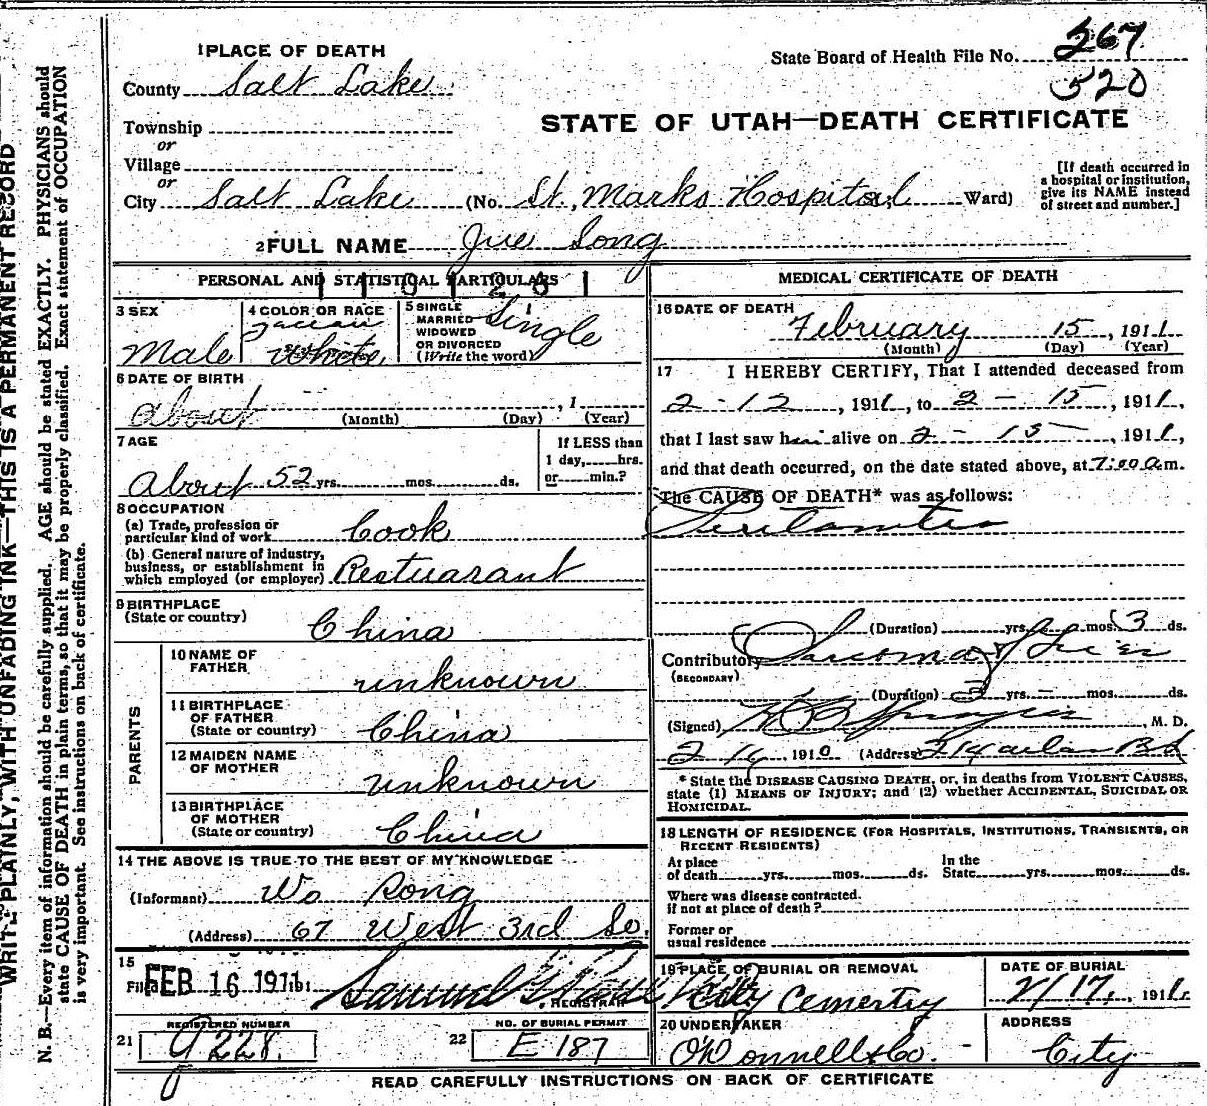 1 PLACE OF DEATH
State Board of Health File No. 267
County Salt Lake
520
Township
STATE OF UTAH—DEATH CERTIFICATE
or
Village
or
City Salt Lake (No. St. Marks Hospital Ward)
[If death occurred in
a hospital or institution,
give its NAME instead
of street and number.]
2 FULL NAME Jue Song
PERSONAL AND STATISTICAL PARTICULARS
3 SEX
Male
4 COLOR OR RACE
White
5 SINGLE
MARRIED
WIDOWED
OR DIVORCED
(Write the word)
Single
6 DATE OF BIRTH
About , 1
(Month) (Day) (Year)
7 AGE
About 52 yrs. mos. ds.
If LESS than
1 day, hrs.
or min.?
8 OCCUPATION
(a) Trade, profession or
particular kind of work Cook
(b) General nature of industry,
business, or establishment in
which employed (or employer) Restuarant
9 BIRTHPLACE
(State or country)
China
PARENTS
10 NAME OF
FATHER
unknown
11 BIRTHPLACE
OF FATHER
(State or country)
China
12 MAIDEN NAME
OF MOTHER
unknown
13 BIRTHPLACE
OF MOTHER
(State or country)
China
14 THE ABOVE IS TRUE TO THE BEST OF MY KNOWLEDGE
(Informant) Wo Song
(Address) 67 West 3rd So.
15
Filed FEB 16 1911 Samuel G.
REGISTRAR
REGISTERED NUMBER
21 G 228.
NO. OF BURIAL PERMIT
22 E 187
MEDICAL CERTIFICATE OF DEATH
16 DATE OF DEATH
February 15, 1911
(Month) (Day) (Year)
17 I HEREBY CERTIFY, That I attended deceased from
2-12, 1911, to 2-15, 1911,
that I last saw him alive on 2-15, 1911,
and that death occurred, on the date stated above, at 7:00 a.m.
The CAUSE OF DEATH* was as follows:
(Duration) yrs. mos. 3 ds.
Contributory Sarcoma
(SECONDARY)
(Duration) 3 yrs. - mos. ds.
(Signed) M. D.
2/16 1910 (Address)
* State the DISEASE CAUSING DEATH, or, in deaths from VIOLENT CAUSES,
state (1) MEANS OF INJURY; and (2) whether ACCIDENTAL, SUICIDAL OR
HOMICIDAL.
18 LENGTH OF RESIDENCE (FOR HOSPITALS, INSTITUTIONS, TRANSIENTS, OR
RECENT RESIDENTS)
At place
of death yrs. mos. ds.
In the
State yrs. mos. ds.
Where was disease contracted.
if not at place of death?
Former or
usual residence
19 PLACE OF BURIAL OR REMOVAL
City Cemertry
DATE OF BURIAL
2/17, 1911.
20 UNDERTAKER
O'Donnell & Co.
ADDRESS
City
READ CAREFULLY INSTRUCTIONS ON BACK OF CERTIFICATE
WRITE PLAINLY, WITH UNFADING INK—THIS IS A PERMANENT RECORD
N. B.—Every item of information should be carefully supplied. AGE should be stated EXACTLY. PHYSICIANS should
state CAUSE OF DEATH in plain terms, so that it may be properly classified. Exact statement of OCCUPATION
is very important. See instructions on back of certificate.